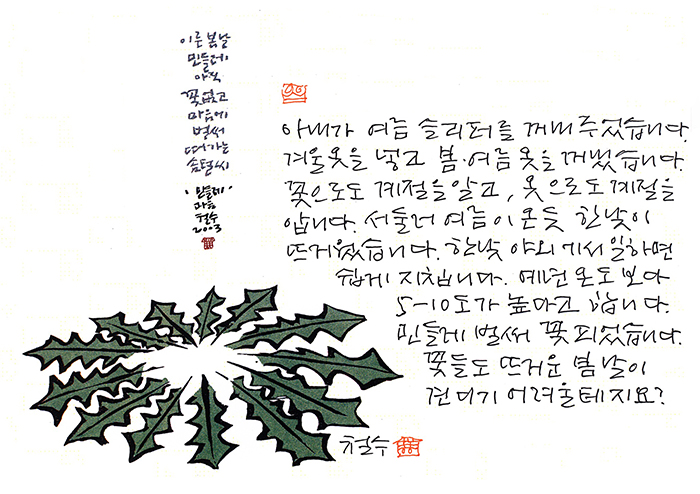 이른 봄날
민들레
아직
꽃 없고
마음에
벌써
떠가는
솜털씨
'민들레'
마음
철수
2003
아내가 여름 슬리퍼를 꺼내 주었습니다.
겨울옷을 넣고 봄·여름 옷을 꺼냈습니다.
꽃으로도 계절을 알고, 옷으로도 계절을
압니다. 서둘러 여름이 온 듯 한낮이
뜨거웠습니다. 한낮 야외에서 일하면
쉽게 지칩니다. 예년 온도보다
5-10도가 높다고 합니다.
민들레 벌써 꽃 피었습니다.
꽃들도 뜨거운 봄날이
견디기 어려울 테지요?
철수